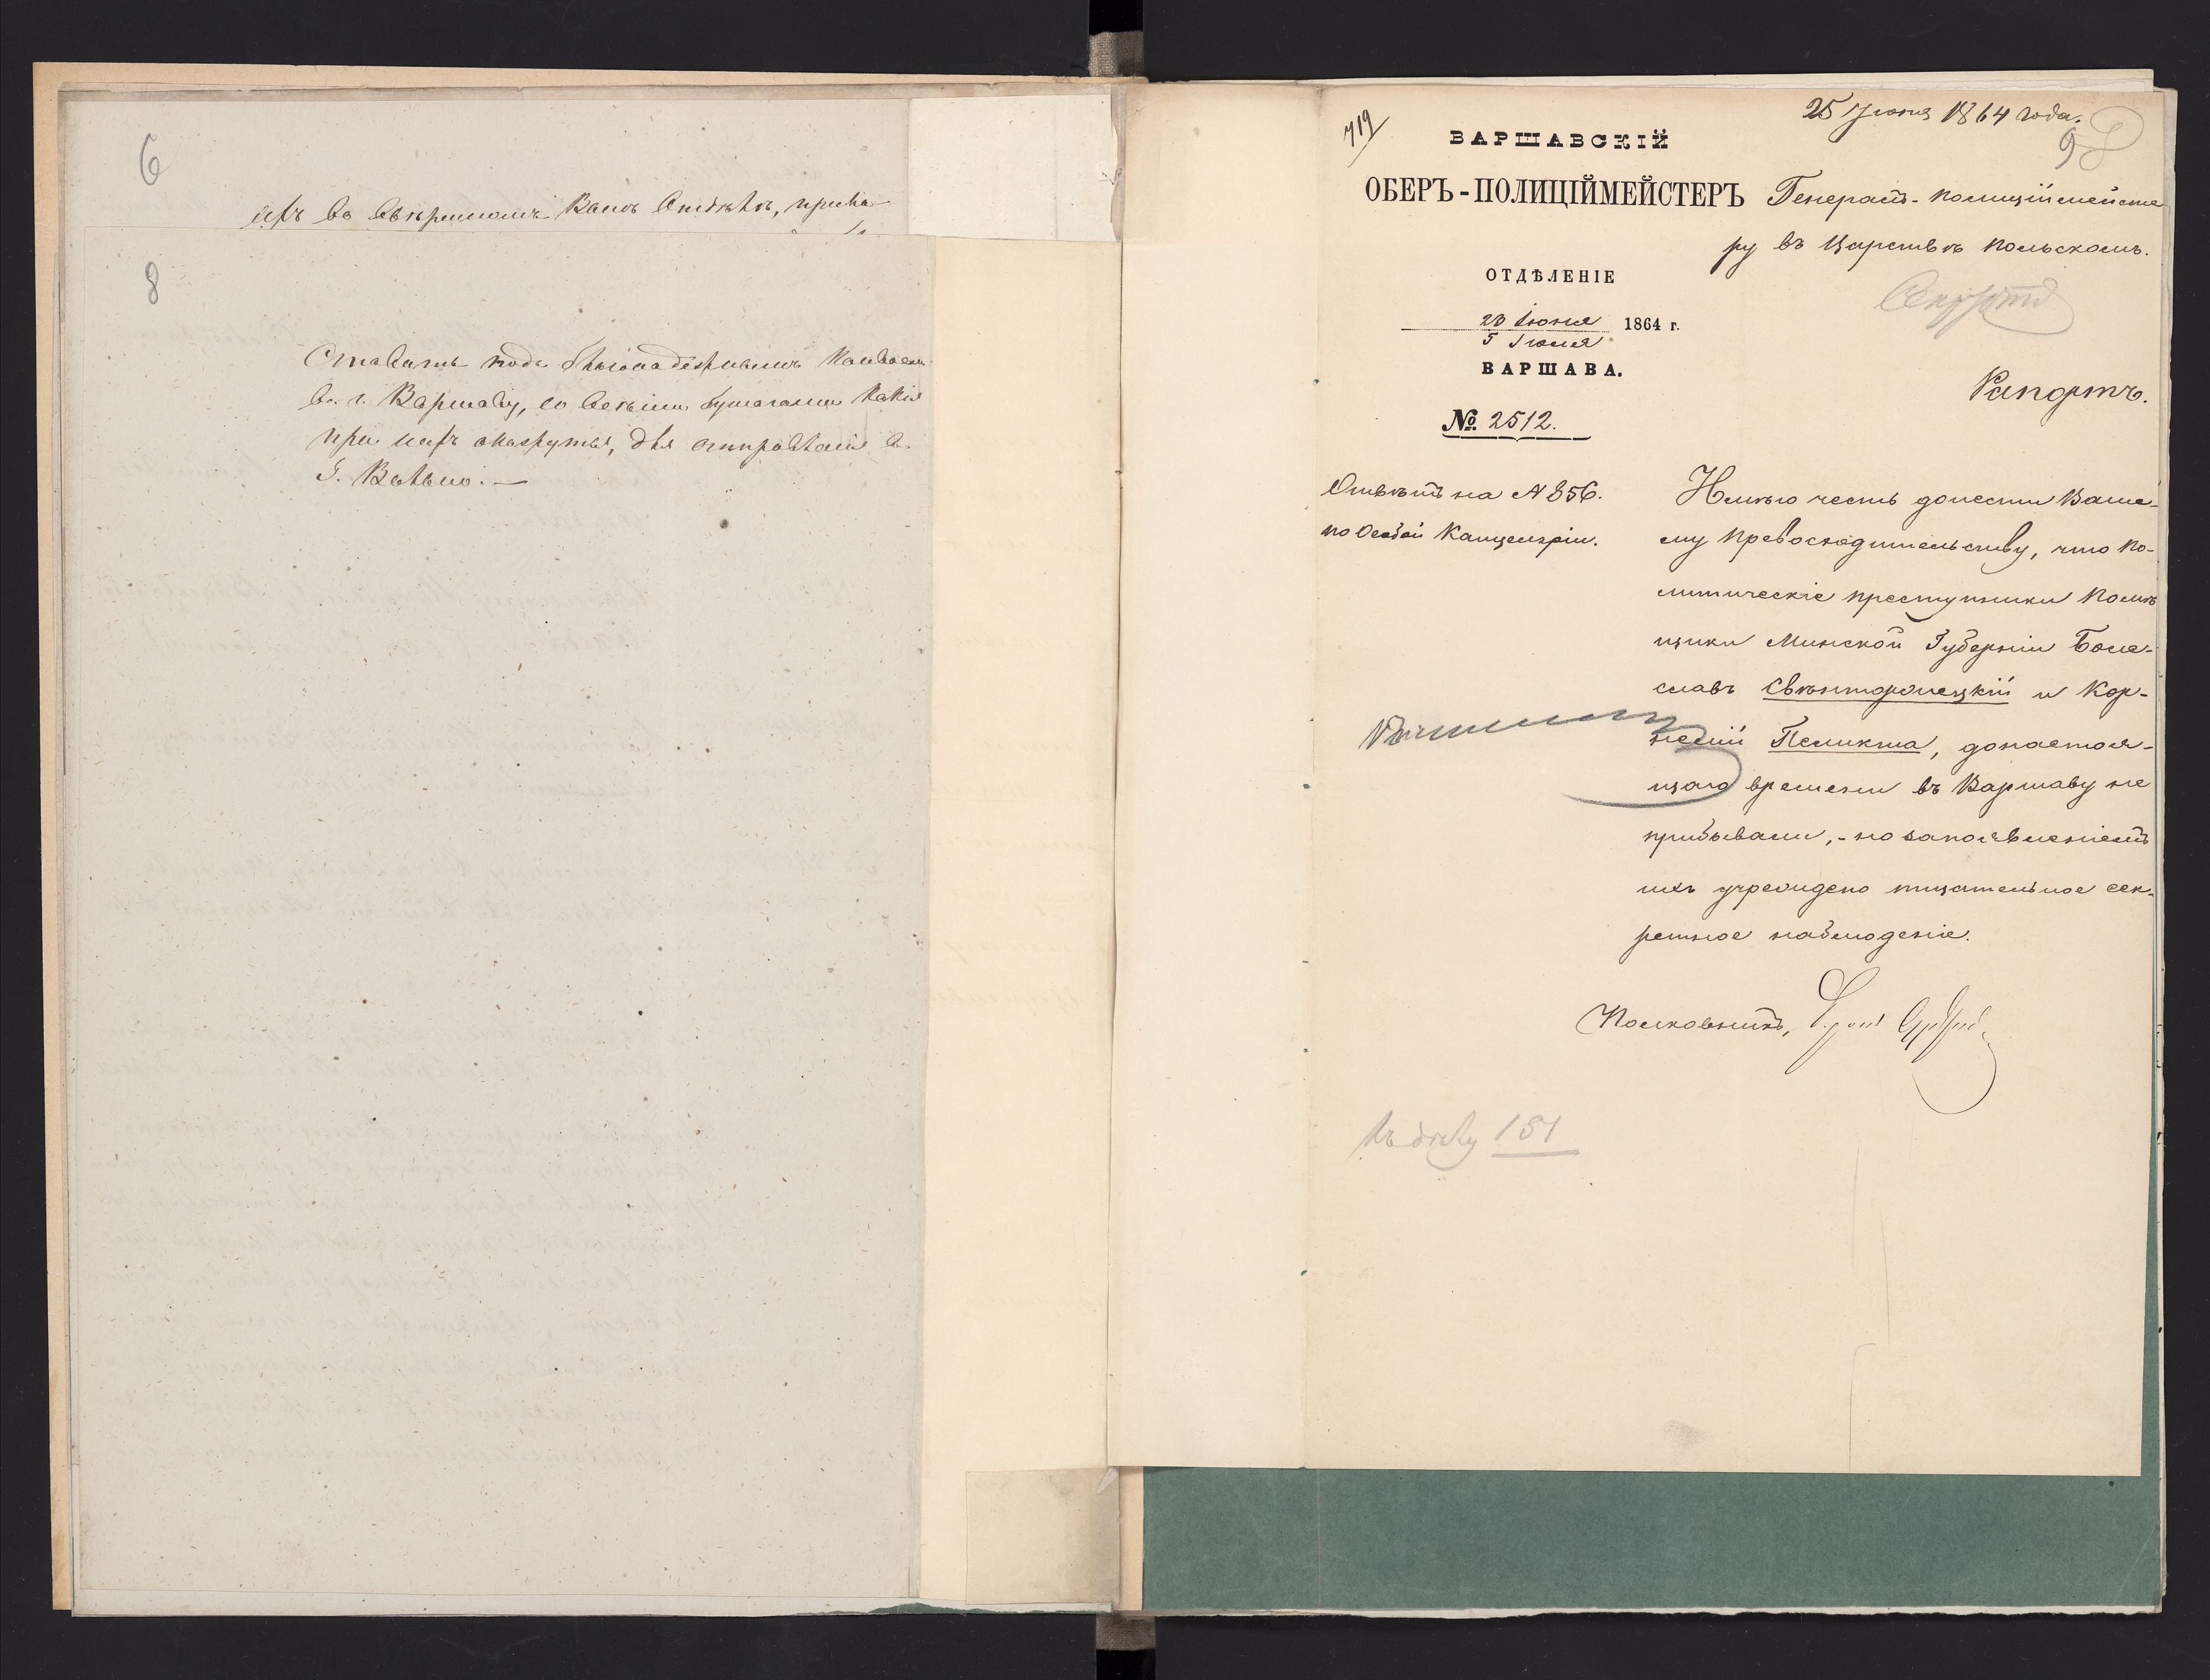 6
ихъ во ввѣренномъ Вамъ Отдѣлѣ, прика-
8
ставить подъ благонадежнымъ конвоемъ
въ г. Варшаву, со всѣми бумагами какія
при нихъ окажутся, для отправленія въ
г. Вильно. —
719
25 Іюня 1864 года.
9
ВАРШАВСКІЙ
ОБЕРЪ-ПОЛИЦІЙМЕЙСТЕРЪ
Генералъ-Полиціймейсте
ру въ Царствѣ Польскомъ.
ОТДѢЛЕНІЕ
Секретно
23 Іюня
5 Іюля
1864 г.
ВАРШАВА.
Рапортъ.
№ 2512.
Отвѣтъ на N 856.
по Особой Канцеляріи.
Имѣю честь донести Ваше-
му Превосходительству, что по-
литическіе преступники Помѣ
щики Минской Губерніи Боле-
славъ Свѣнторжецкій и Кор-
нелій Пеликша, до настоя-
щаго времени въ Варшаву не
прибывали, - но за появленіемъ
ихъ учреждено тщательное сек-
ретное наблюденіе.
Полковникъ,
Къ дѣлу 151